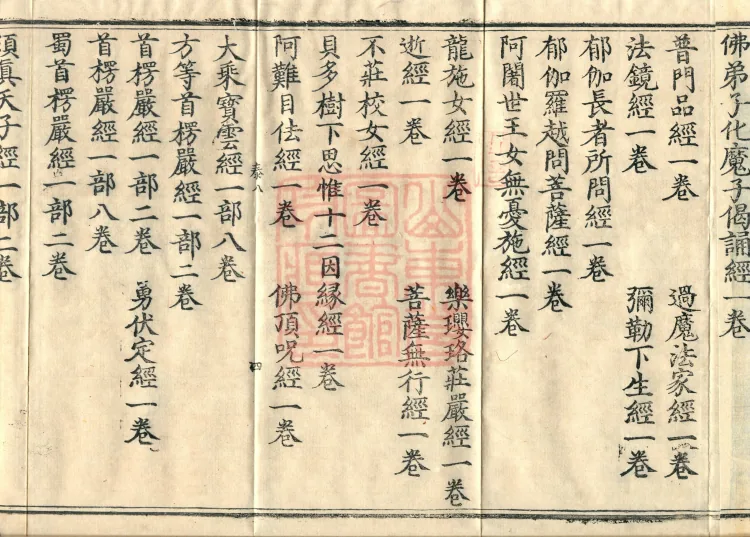 佛弟子化魔子偈誦經一卷
普門品經一卷 過魔法家經一卷
法鏡經一卷 彌勒下生經一卷
郁伽長者所問經一卷
郁伽羅越問菩薩經一卷
阿闍世王女無憂施經一卷
龍施女經一卷 樂瓔珞莊嚴經一卷
逝經一卷 菩薩無行經一卷
不莊校女經一卷
貝多樹下思惟十二因緣經一卷
阿難目佉經一卷 佛頂呪經一卷
泰八 四
大乘寶雲經一部八卷
方等首楞嚴經一部二卷
首楞嚴經一部二卷 勇伏定經一卷
首楞嚴經一部八卷
蜀首楞嚴經一部二卷
須真天子經一部二卷